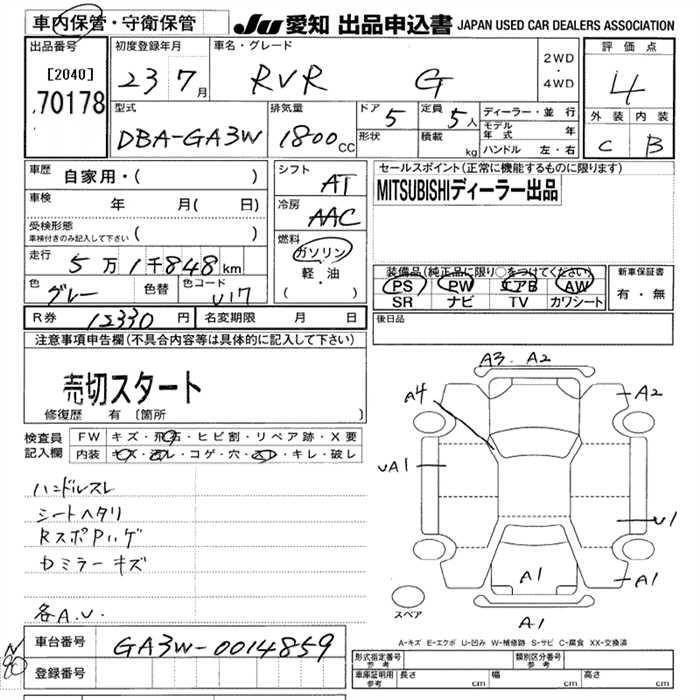 車内保管・守衛保管
JU 愛知 出品申込書 JAPAN USED CAR DEALERS ASSOCIATION
出品番号
[2040]
70178
初度登録年月
23 7月
車名・グレード
RVR G
2WD
・
4WD
評価点
4
外装 内装
C B
型式
DBA-GA3W
排気量
1800 CC
ドア 5
形状
定員 5人
積載 kg
ディーラー・並行
モデル年式 年
ハンドル 左・右
車歴 自家用・( )
車検 年 月( 日)
受検形態
車検付きのみ記入して下さい ( )
走行 5万1千848km
色 グレー 色替 色コード U17
シフト AT
冷房 AAC
燃料
ガソリン
軽・油
( )
セールスポイント(正常に機能するものに限ります)
MITSUBISHIディーラー出品
装備品(純正品に限り○をつけてください)
PS PW エアB AW
SR ナビ TV カワシート
新車保証書
有・無
R券 12330円 名変期限 月 日
後日品
注意事項申告欄(不具合内容等は具体的に記入して下さい)
売切スタート
修復歴 有 〔箇所 〕
検査員記入欄
FW キズ・飛石・ヒビ割・リペア跡・X要
内装 キズ・スレ・コゲ・穴・・キレ・破レ
ハンドルスレ
シートヘタリ
RスポPハゲ
Dミラーキズ
各A.U.
A3 A2
A4
A2
UA1
U1
A1
A1
A1
スペア
A-キズ E-エクボ U-凹み W-補修跡 S-サビ C-腐食 XX-交換済
車台番号 GA3W-0014859
登録番号
形式指定番号 参考
類別区分番号 参考
車庫証明用 参考 長さ cm 幅 cm 高さ cm